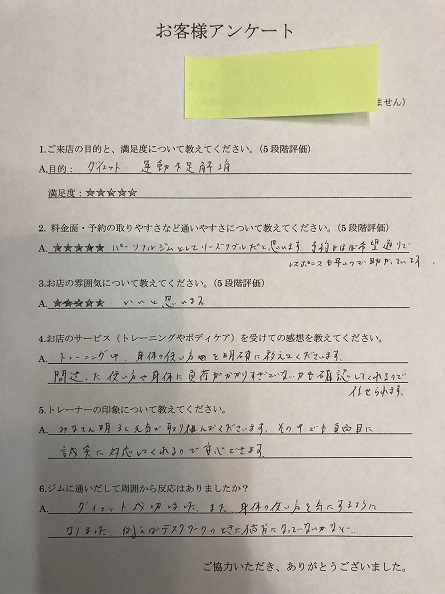 お客様アンケート
ません)
1.ご来店の目的と、満足度について教えてください。(5段階評価)
A.目的： ダイエット 運動不足解消
満足度：☆☆☆☆☆
2. 料金面・予約の取りやすさなど通いやすさについて教えてください。(5段階評価)
A. ★★★★★ パーソナルジムとしてリーズナブルだと思います 予約もほぼ希望通りで
レスポンスも早いので助かっています。
3.お店の雰囲気について教えてください。(5段階評価)
A. ★★★★★ いいと思います
4.お店のサービス（トレーニングやボディケア）を受けての感想を教えてください。
A. トレーニング中、身体の使い方を明確に教えてくださいます。
間違った使い方や身体に負荷がかかりすぎていないかも確認してくれるので
任せられます。
5.トレーナーの印象について教えてください。
A. みなさん明るく元気で取り組んでくださいます。その中でも真面目に
誠実に対応してくれるので安心できます。
6.ジムに通いだして周囲から反応はありましたか？
A. ダイエット成功しました、また、身体の使い方を気にするように
なりました 例えばデスクワークのときに偏方になっていないかなど…
ご協力いただき、ありがとうございました。